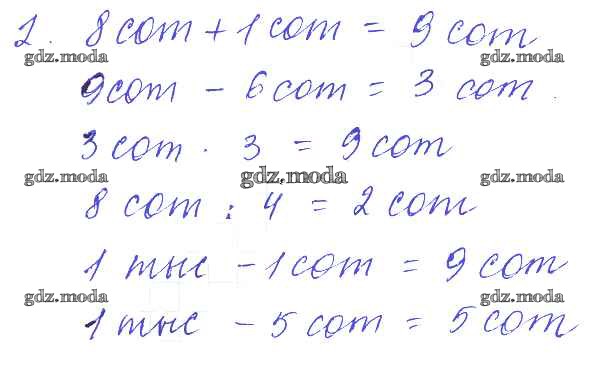 2. 8 сот + 1 сот = 9 сот
gdz.moda gdz.moda gdz.moda
9 сот - 6 сот = 3 сот.
3 сот · 3 = 9 сот
gdz.moda gdz.moda gdz.moda
8 сот : 4 = 2 сот
1 тыс - 1 сот = 9 сот
gdz.moda gdz.moda gdz.moda
1 тыс - 5 сот = 5 сот